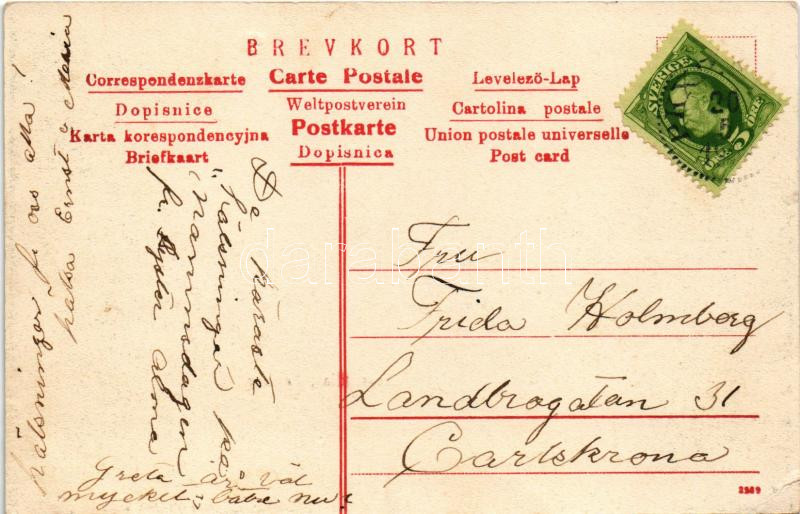 BREVKORT
Correspondenzkarte
Carte Postale
Levelező-Lap
Dopisnice
Weltpostverein
Cartolina postale
Karta korespondencyjna
Postkarte
Union postale universelle
Briefkaart
Dopisnica
Post card
SVERIGE
5 ÖRE
20
darabanth
Fru
Frida Holmberg
Landbrogatan 31
Carlskrona
De käraste
hälsningar på
namnsdagen
fr. Syster Alma
Greta är väl
mycket bätre nu
Hälsningar fr oss alla!
hälsa Ernst o Maria
2569